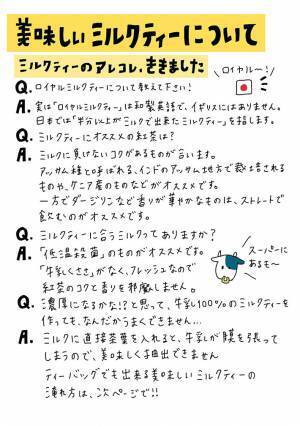 美味しいミルクティーについて
ミルクティーのアレコレ、ききました
ロイヤル〜!
Q. ロイヤルミルクティーについて教えて下さい!
A. 実は「ロイヤルミルクティー」は和製英語で、イギリスにはありません。
日本では「半分以上がミルクで出来たミルクティー」を指します。
Q. ミルクティーにオススメの紅茶は?
A. ミルクに負けないコクがあるものが合います。
アッサム種と呼ばれる、インドのアッサム地方で栽培される
ものや、ケニア産のものなどがオススメです。
一方でダージリンなど香りが華やかなものは、ストレートで
飲むのがオススメです。
Q. ミルクティーに合うミルクってありますか?
A. 「低温殺菌」のものがオススメです。
「牛乳くささ」がなく、フレッシュなので
紅茶のコクと香りを邪魔しません。
スーパーに
あるも〜
Q. 濃厚になるかな!?と思って、牛乳100%のミルクティーを
作っても、なんだかうまくできません...
A. ミルクに直接茶葉を入れると、牛乳が膜を張って
しまうので、美味しく抽出できません
ティーバッグでも出来る美味しいミルクティーの
淹れ方は、次ページで!!